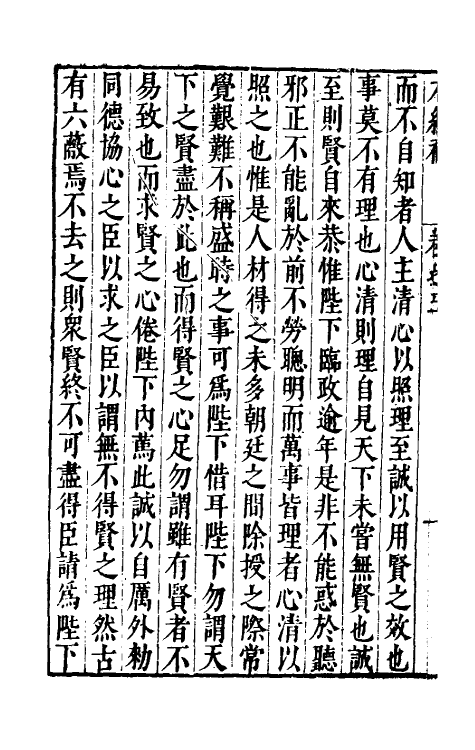 而不自知者人主清心以照理至誠以用賢之效也
事莫不有理也心清則理自見天下未嘗無賢也誠
至則賢自來恭惟陛下臨政逾年是非不能惑於聽
邪正不能亂於前不勞聰明而萬事皆理者心清以
照之也惟是人材得之未多朝廷之間除授之際常
覺艱難不稱盛時之事可為陛下惜耳陛下勿謂天
下之賢盡於此也而得賢之心足勿謂雖有賢者不
易致也而求賢之心倦陛下內蔫此誠以自厲外勑
同德協心之臣以求之臣以謂無不得賢之理然古
有六蔽焉不去之則衆賢終不可盡得臣請為陛下